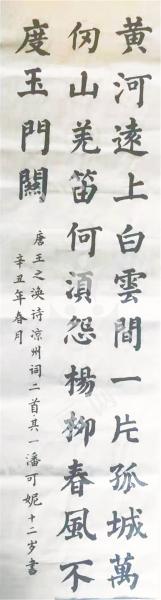 黃河遠上白雲間一片孤城萬
仞山羌笛何須怨楊柳春風不
度玉門關
唐王之渙诗凉州词二首·其一潘可妮十二岁書
辛丑年春月